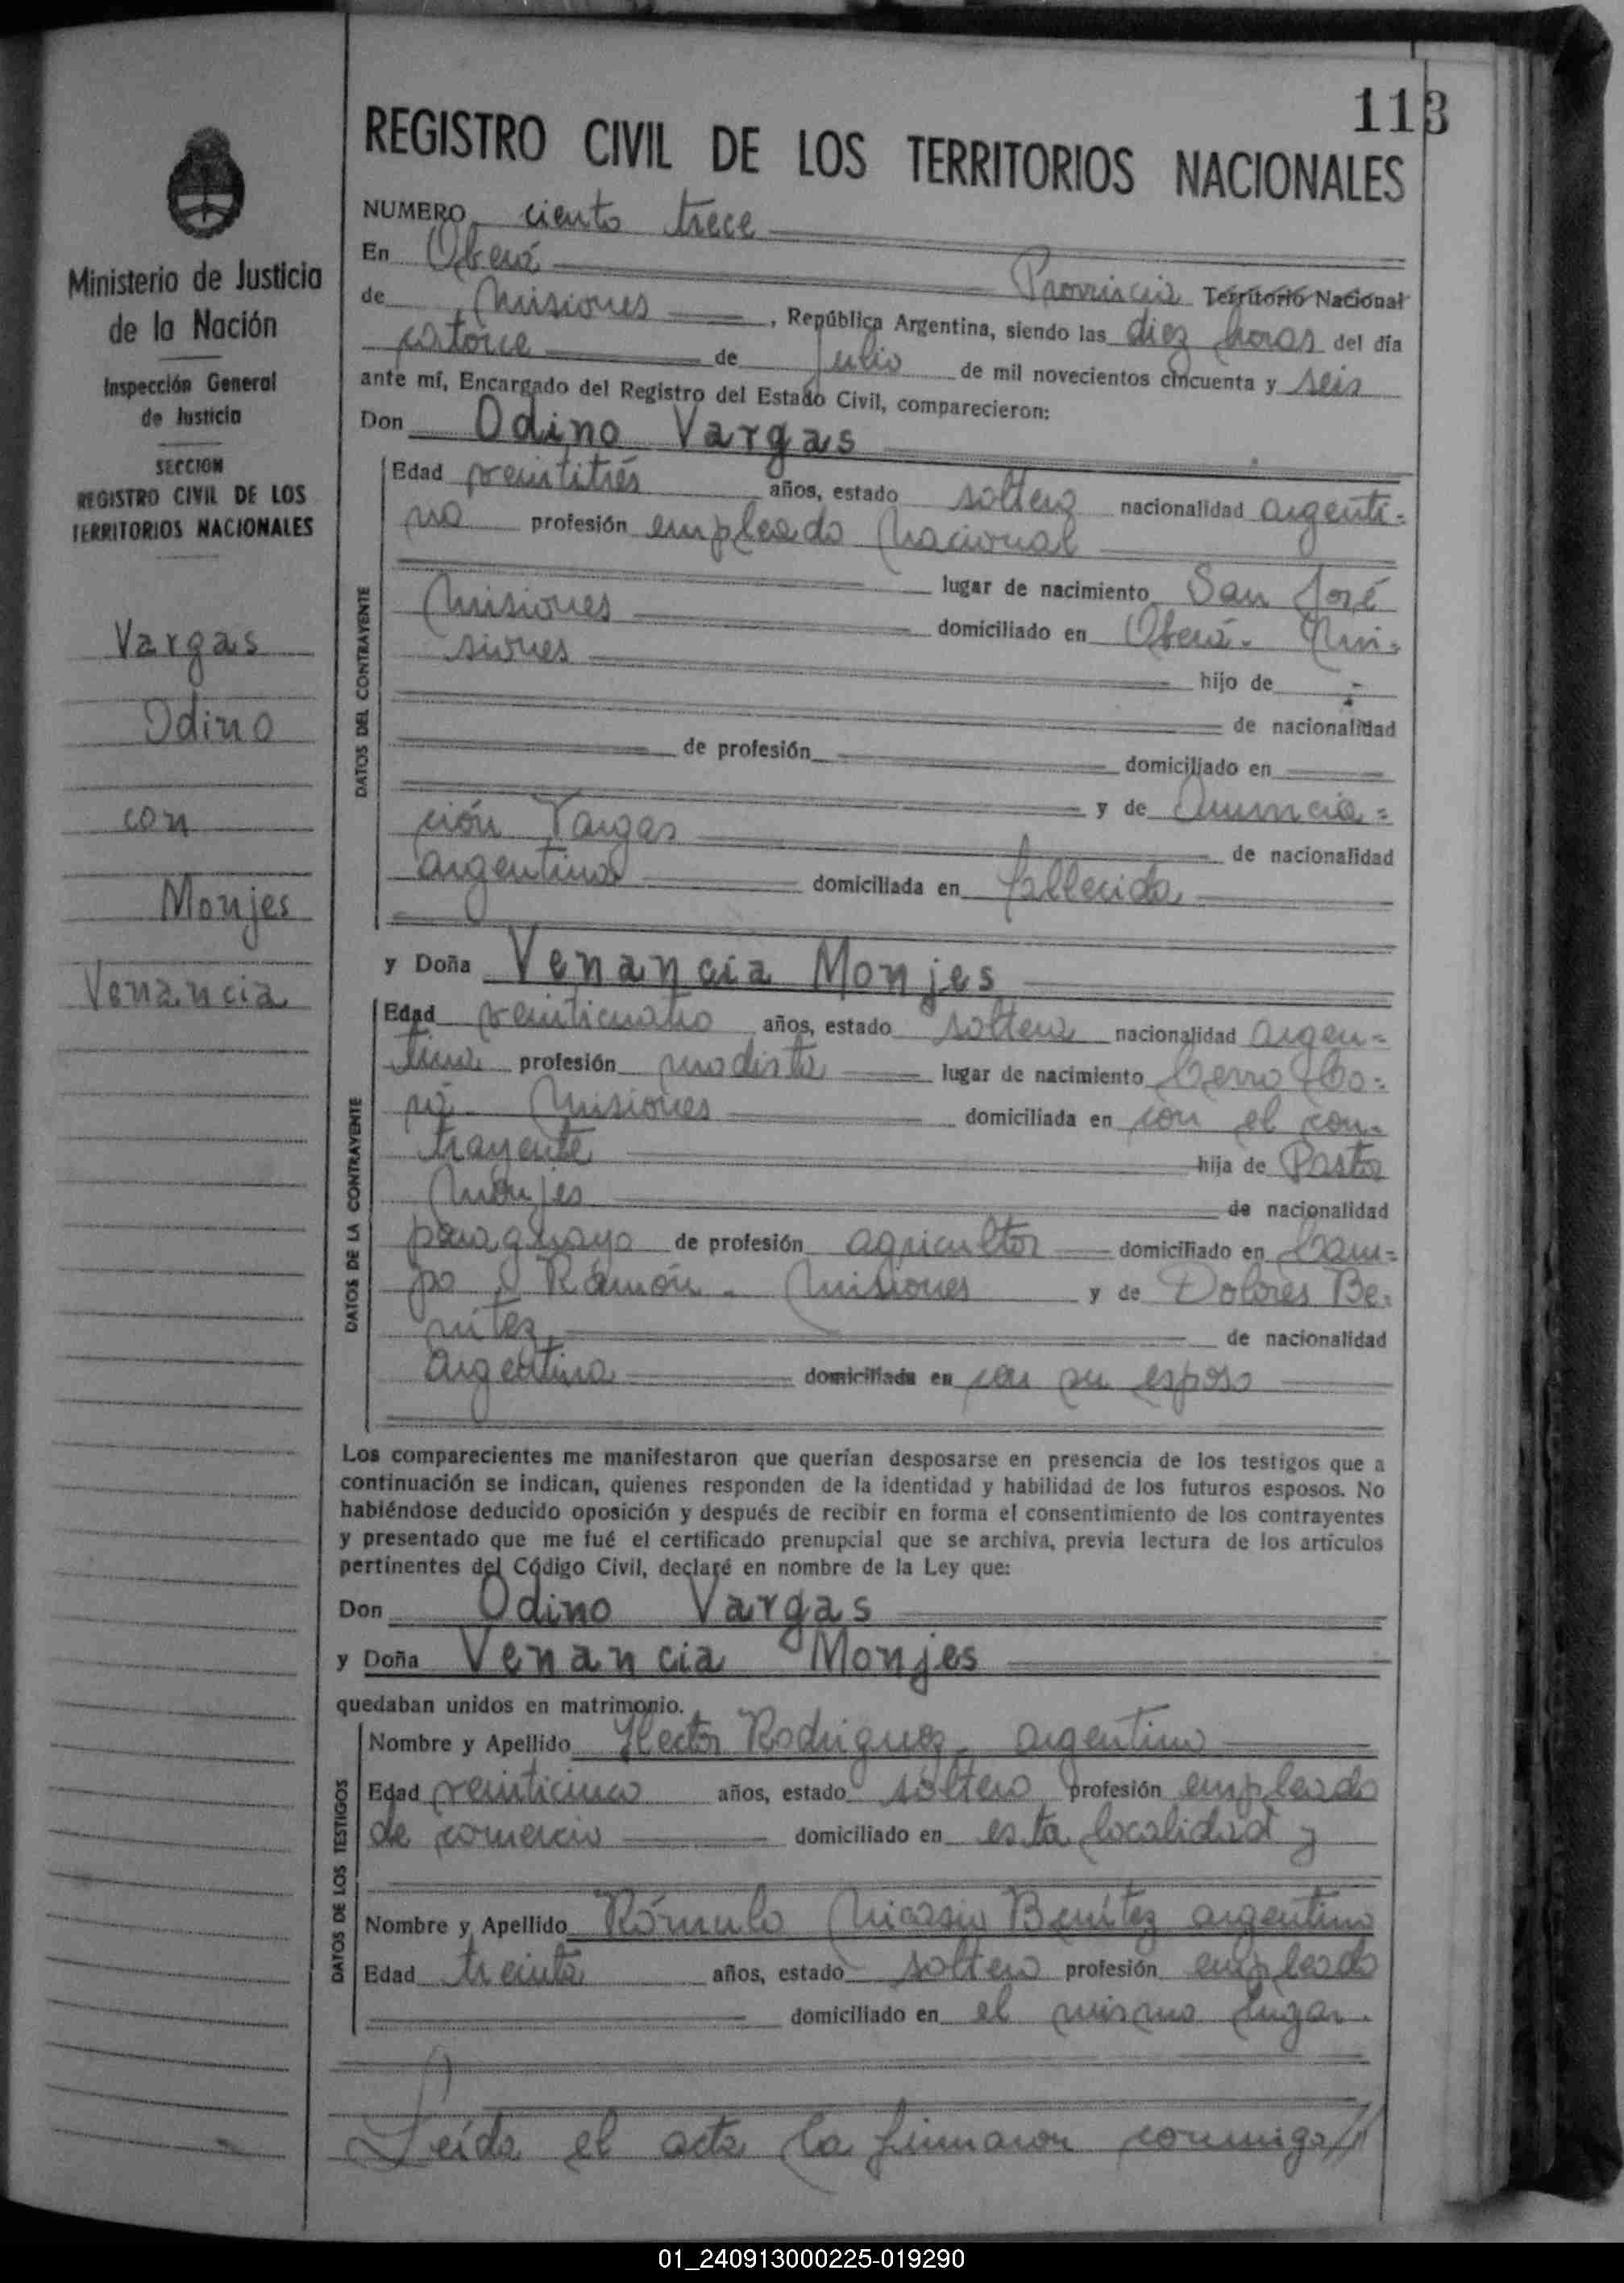 113
REGISTRO CIVIL DE LOS TERRITORIOS NACIONALES
Ministerio de Justicia
de la Nación
Inspección General
de Justicia
SECCION
REGISTRO CIVIL DE LOS
TERRITORIOS NACIONALES
Vargas
Odino
con
Monjes
Venancia
NUMERO ciento trece
En Oberá Provincia Territorio Nacional
de Misiones, República Argentina, siendo las diez horas del día
catorce de julio de mil novecientos cincuenta y seis
ante mí, Encargado del Registro del Estado Civil, comparecieron:
Don Odino Vargas
DATOS DEL CONTRAYENTE
Edad veintitrés años, estado soltero nacionalidad argenti-
no profesión empleado Nacional
lugar de nacimiento San José
Misiones domiciliado en Oberá- Mi-
siones
hijo de
de nacionalidad
de profesión domiciliado en
y de Anuncia=
ción Vargas de nacionalidad
argentina domiciliada en fallecida
y Doña Venancia Monjes
DATOS DE LA CONTRAYENTE
Edad veinticuatro años, estado soltera nacionalidad argen=
tina profesión modista lugar de nacimiento Cerro Co=
rá- Misiones domiciliada en con el con-
trayente hija de Pastor
Monjes de nacionalidad
paraguayo de profesión agricultor domiciliado en Cam=
po Ramón- Misiones y de Dolores Be-
nítez de nacionalidad
argentina domiciliada en con su esposo
Los comparecientes me manifestaron que querían desposarse en presencia de los testigos que a
continuación se indican, quienes responden de la identidad y habilidad de los futuros esposos. No
habiéndose deducido oposición y después de recibir en forma el consentimiento de los contrayentes
y presentado que me fué el certificado prenupcial que se archiva, previa lectura de los artículos
pertinentes del Código Civil, declaré en nombre de la Ley que:
Don Odino Vargas
y Doña Venancia Monjes
quedaban unidos en matrimonio.
DATOS DE LOS TESTIGOS
Nombre y Apellido Hector Rodriguez- argentino
Edad veinticinco años, estado soltero profesión empleado
de comercio domiciliado en esta localidad y
Nombre y Apellido Rómulo Nicasio Benítez argentino
Edad treinta años, estado soltero profesión empleado
domiciliado en el mismo lugar.
Leída el acta la firmaron conmigo//
01_240913000225-019290